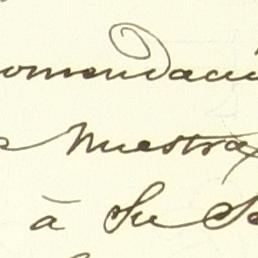 omendació
Nuestra
à Su Sa